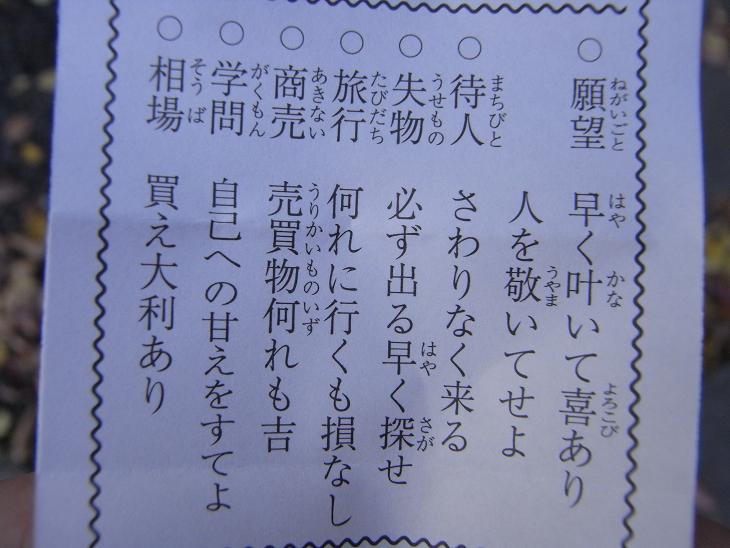 ○ 願望 早く叶いて喜あり
人を敬いてせよ
○ 待人 さわりなく来る
○ 失物 必ず出る早く探せ
○ 旅行 何れに行くも損なし
○ 商売 売買物何れも吉
○ 学問 自己への甘えをすてよ
○ 相場 買え大利あり
ねがいごと はや かな よろこび
うやま
まちびと
うせもの はや さが
たびだち
あきない うりかいものいず
がくもん
そうば